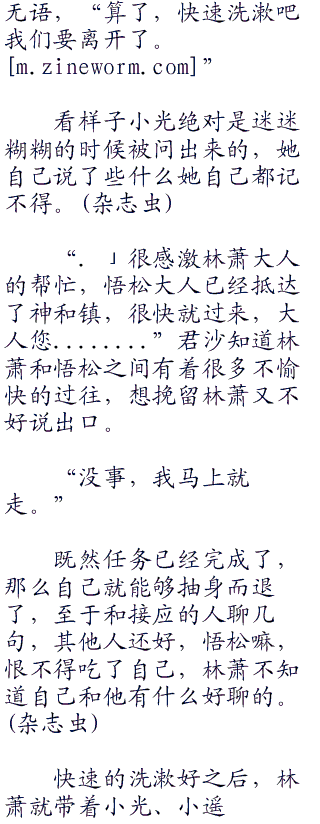 无语，“算了，快速洗漱吧
我们要离开了。
[m.zineworm.com]”
看样子小光绝对是迷迷
糊糊的时候被问出来的，她
自己说了些什么她自己都记
不得。(杂志虫)
“. 」很感激林萧大人
的帮忙，悟松大人已经抵达
了神和镇，很快就过来，大
人您........”君沙知道林
萧和悟松之间有着很多不愉
快的过往，想挽留林萧又不
好说出口。
“没事，我马上就
走。”
既然任务已经完成了，
那么自己就能够抽身而退
了，至于和接应的人聊几
句，其他人还好，悟松嘛，
恨不得吃了自己，林萧不知
道自己和他有什么好聊的。
(杂志虫)
快速的洗漱好之后，林
萧就带着小光、小遥